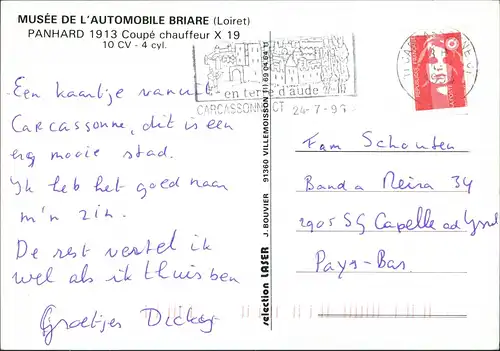 MUSÉE DE L'AUTOMOBILE BRIARE (Loiret)
PANHARD 1913 Coupé chauffeur X 19
10 CV - 4 cyl.
en terre d'aude
CARCASSONNE CT 24-7-96
Een kaartje vanuit
Carcassonne, dit is een
erg mooie stad.
Ik heb het goed naar
m'n zin.
De rest vertel ik
wel als ik thuis ben
Groetjes Dicky
selection LASER J. BOUVIER 91360 VILLEMOISSON (1) 69 04 84 11
Fam Schouten
Banda Neira 34
2905 SG Capelle ad Yssel
Pays-Bas.